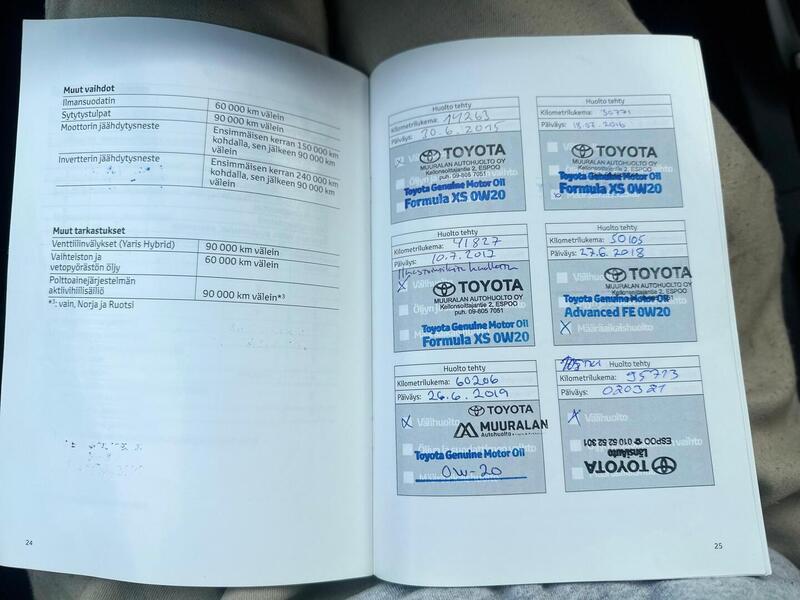 Muut vaihdot
Ilmansuodatin 60 000 km välein
Sytytystulpat 90 000 km välein
Moottorin jäähdytysneste Ensimmäisen kerran 150 000 km
kohdalla, sen jälkeen 90 000 km
välein
Invertterin jäähdytysneste Ensimmäisen kerran 240 000 km
kohdalla, sen jälkeen 90 000 km
välein
Muut tarkastukset
Venttiilinvälykset (Yaris Hybrid) 90 000 km välein
Vaihteiston ja
vetopyörästön öljy 60 000 km välein
Polttoainejärjestelmän
aktiivihiilisäiliö 90 000 km välein*³
*³: vain, Norja ja Ruotsi
24
Huolto tehty
Kilometrilukema: 14263
Päiväys: 10.6.2015
x
TOYOTA
MUURALAN AUTOHUOLTO OY
Kellonsoittajantie 2, ESPOO
puh. 09-805 7051
Toyota Genuine Motor Oil
Formula XS 0W20
Huolto tehty
Kilometrilukema: 30771
Päiväys: 18.07.2016
TOYOTA
MUURALAN AUTOHUOLTO OY
Kellonsoittajantie 2, ESPOO
Toyota Genuine Motor Oil
Formula XS 0W20
Huolto tehty
Kilometrilukema: 41827
Päiväys: 10.7.2017
x
TOYOTA
MUURALAN AUTOHUOLTO OY
Kellonsoittajantie 2, ESPOO
puh. 09-805 7051
Toyota Genuine Motor Oil
Formula XS 0W20
Huolto tehty
Kilometrilukema: 50105
Päiväys: 27.6.2018
TOYOTA
MUURALAN AUTOHUOLTO OY
Kellonsoittajantie 2, ESPOO
Toyota Genuine Motor Oil
Advanced FE 0W20
x Määräaikaishuolto
Huolto tehty
Kilometrilukema: 60206
Päiväys: 26.6.2019
x Välihuolto
TOYOTA
MUURALAN
Autohuolto
Toyota Genuine Motor Oil
0W-20
Huolto tehty
Kilometrilukema: 95713
Päiväys: 020321
x Välihuolto
TOYOTA
LänsiAuto
ESPOO ☎ 010 52 52 301
25